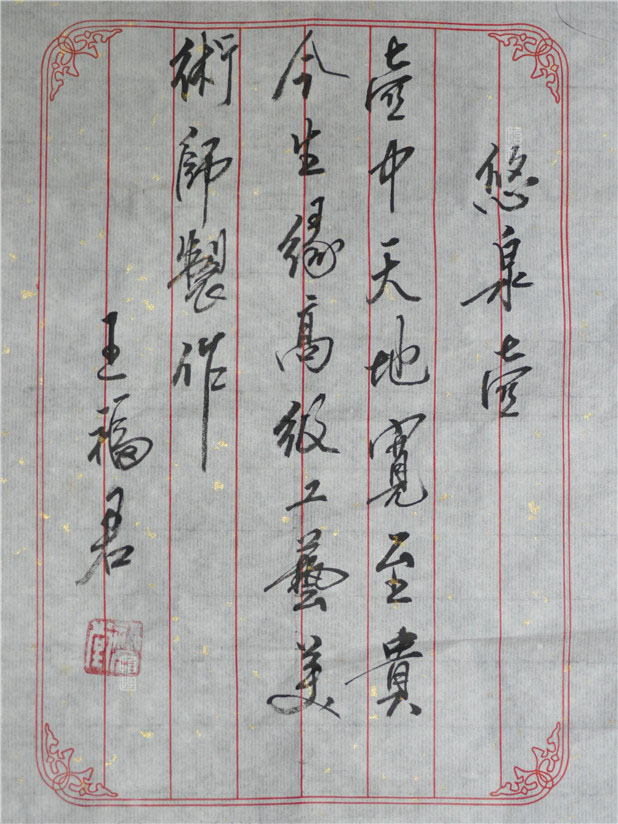 悠泉壶
壶中天地寬至貴
今生缘高级工藝美
術師製作
王福君